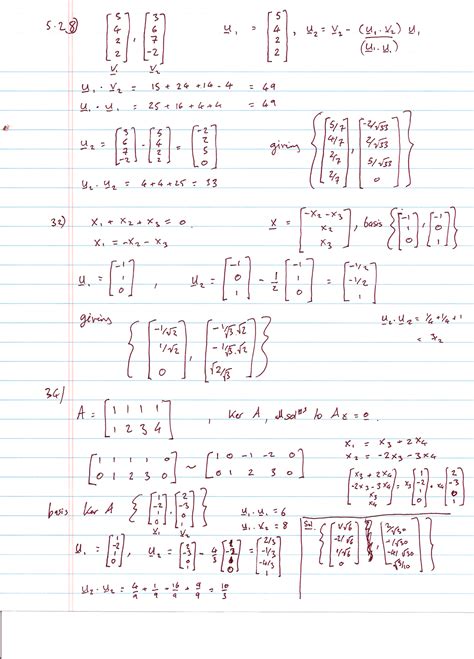 5.2 8) [5 4 2 2], [3 6 7 -2] u₁ = [5 4 2 2], u₂ = v₂ - (u₁·v₂)/(u₁·u₁) u₁
v₁ v₂
u₁·v₂ = 15 + 24 + 14 - 4 = 49
u₁·u₁ = 25 + 16 + 4 + 4 = 49
u₂ = [3 6 7 -2] - [5 4 2 2] = [-2 2 5 0] giving {[5/7 4/7 2/7 2/7], [-2/√33 2/√33 5/√33 0]}
u₂·u₂ = 4 + 4 + 25 = 33
32) x₁ + x₂ + x₃ = 0. x = [-x₂-x₃ x₂ x₃], basis {[-1 1 0], [-1 0 1]}
x₁ = -x₂ - x₃
u₁ = [-1 1 0], u₂ = [-1 0 1] - 1/2 [-1 1 0] = [-1/2 -1/2 1]
giving {[-1/√2 1/√2 0], [-1/√3·√2 -1/√3·√2 √2/√3]} u₂·u₂ = 1/4 + 1/4 + 1
= 3/2
34)
A = [1 1 1 1 1 2 3 4], Ker A, all solⁿˢ to Ax = 0.
x₁ = x₃ + 2x₄
x₂ = -2x₃ - 3x₄
[1 1 1 1 0 0 1 2 3 0] ~ [1 0 -1 -2 0 0 1 2 3 0] [x₃+2x₄ -2x₃-3x₄ x₃ x₄] = x₃ [1 -2 1 0] + x₄ [2 -3 0 1]
basis Ker A {[1 -2 1 0], [2 -3 0 1]} u₁·u₁ = 6
v₁ v₂ u₁·v₂ = 8
u₁ = [1 -2 1 0], u₂ = [2 -3 0 1] - 4/3 [1 -2 1 0] = [2/3 -1/3 -4/3 1]
{[1/√6 -2/√6 1/√6 0], [2/√30 -1/√30 -4/√30 √3/10]}
u₂·u₂ = 4/9 + 1/9 + 16/9 + 9/9 = 10/3